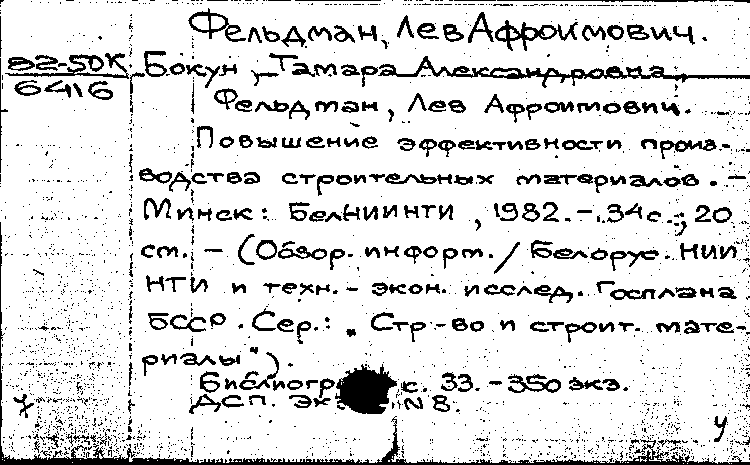 Фельдман, Лев Афроимович.
82-50К Бокун, Тамара Александровна,
6416
Фельдман, Лев Афроимович.
Повышение эффективности произ-
водства строительных материалов. –
Минск: БелНИИНТИ, 1982. – 34 с.; 20
см. – (Обзор. информ. / Белорус. НИИ
НТИ и техн.- экон. исслед. Госплана
БССР. Сер.: "Стр-во и строит. мате-
риалы").
Библиогр. с. 33. – 350 экз.
ДСП. Экз. N 8.
у